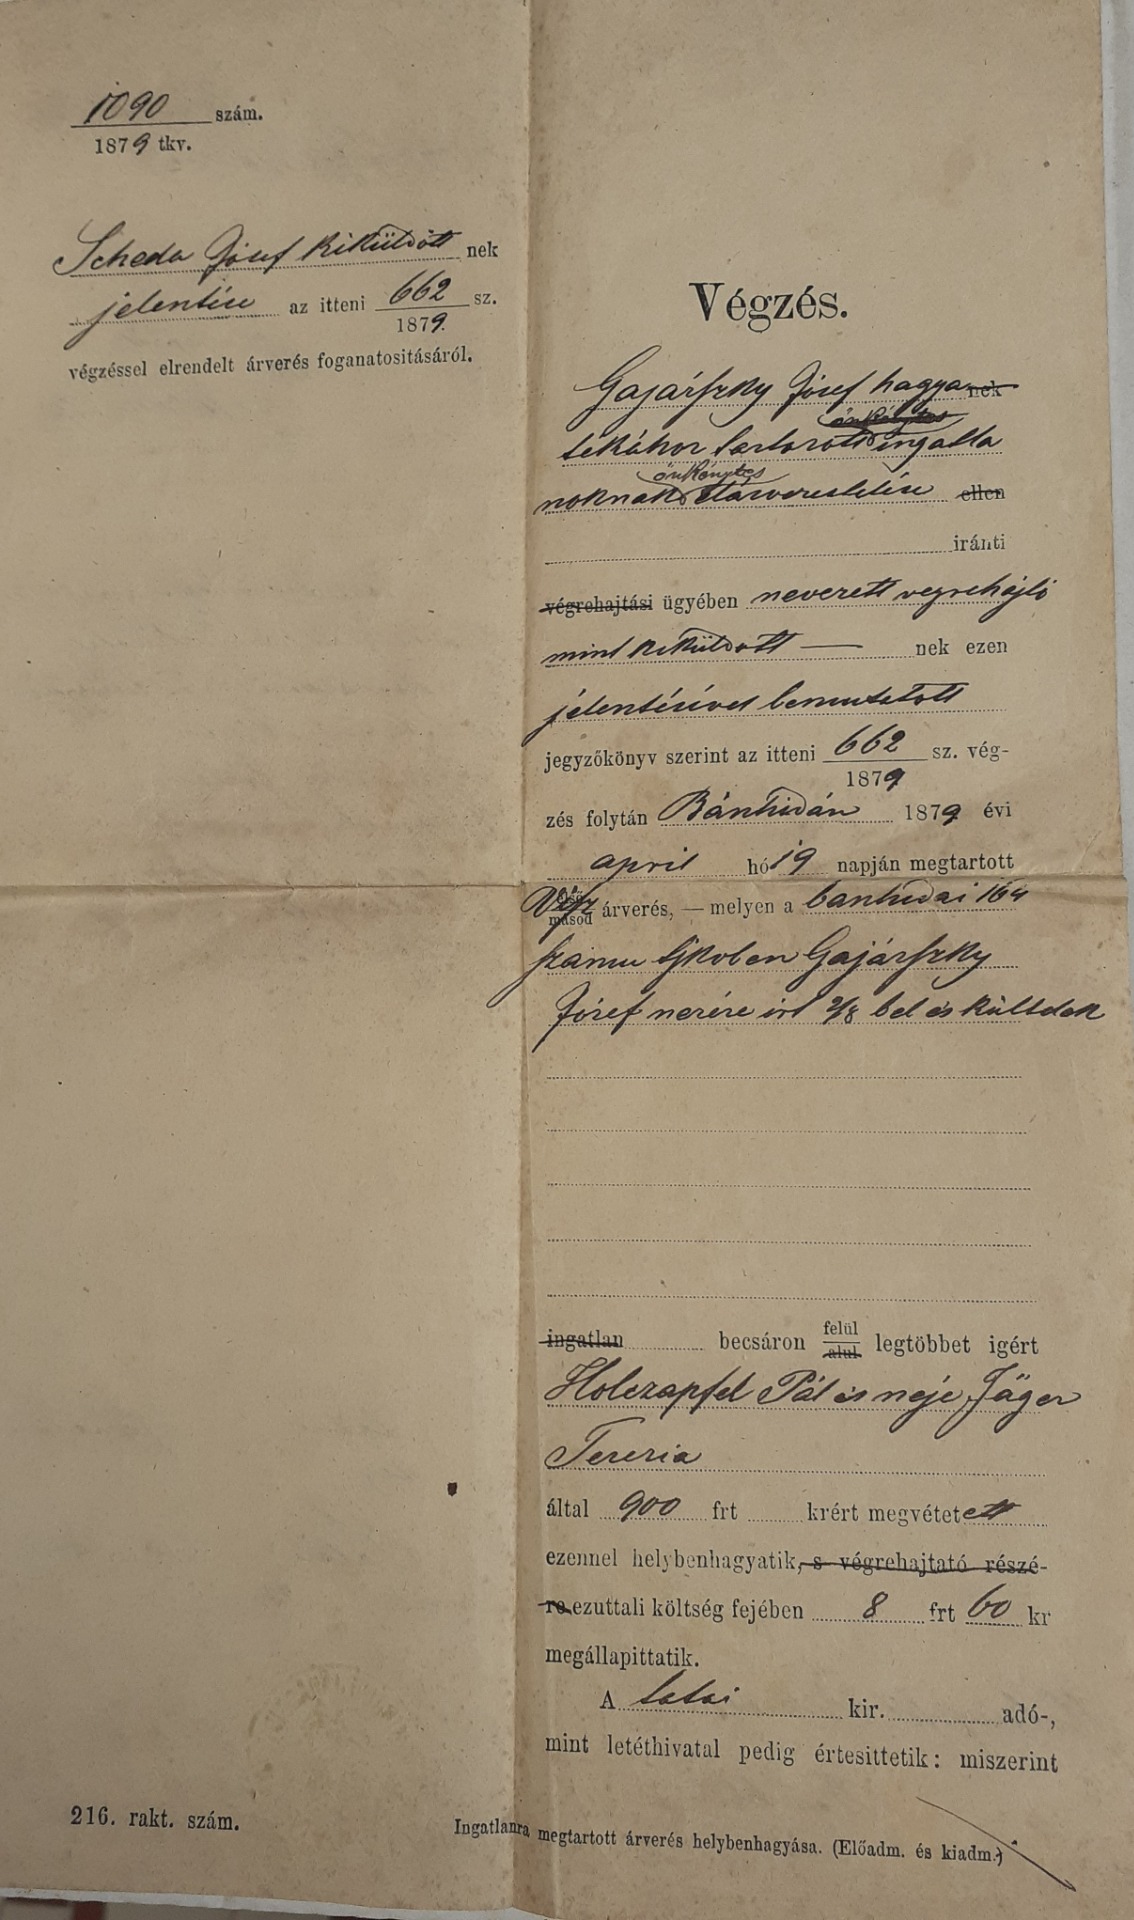 1090 szám.
1879 tkv.
Scheda József kiküldött nek
jelentése az itteni 662 sz.
1879
végzéssel elrendelt árverés foganatositásáról.
Végzés.
Gajárszky József hagya nek
önkéntes
tékához tartozott ingatla
önkéntes
noknak elárvereztetése ellen
iránti
végrehajtási ügyében nevezett végrehajtó
mint kiküldött — nek ezen
jelentésével bemutatott
jegyzőkönyv szerint az itteni 662 sz. vég-
1879
zés folytán Bánhidán 1879 évi
april hó 19 napján megtartott
első
másod árverés, — melyen a bánhidai 164
számu tjkvben Gajárszky
József nevére irt 2/8 bel és kültelek
ingatlan becsáron felül
alul legtöbbet igért
Holczapfel Pál és neje Jäger
Terezia
által 900 frt krért megvétetett
ezennel helybenhagyatik, s végrehajtató részé-
re ezuttali költség fejében 8 frt 60 kr
megállapittatik.
A tatai kir. adó-,
mint letéthivatal pedig értesittetik: miszerint
216. rakt. szám.
Ingatlanra megtartott árverés helybenhagyása. (Előadm. és kiadm.)